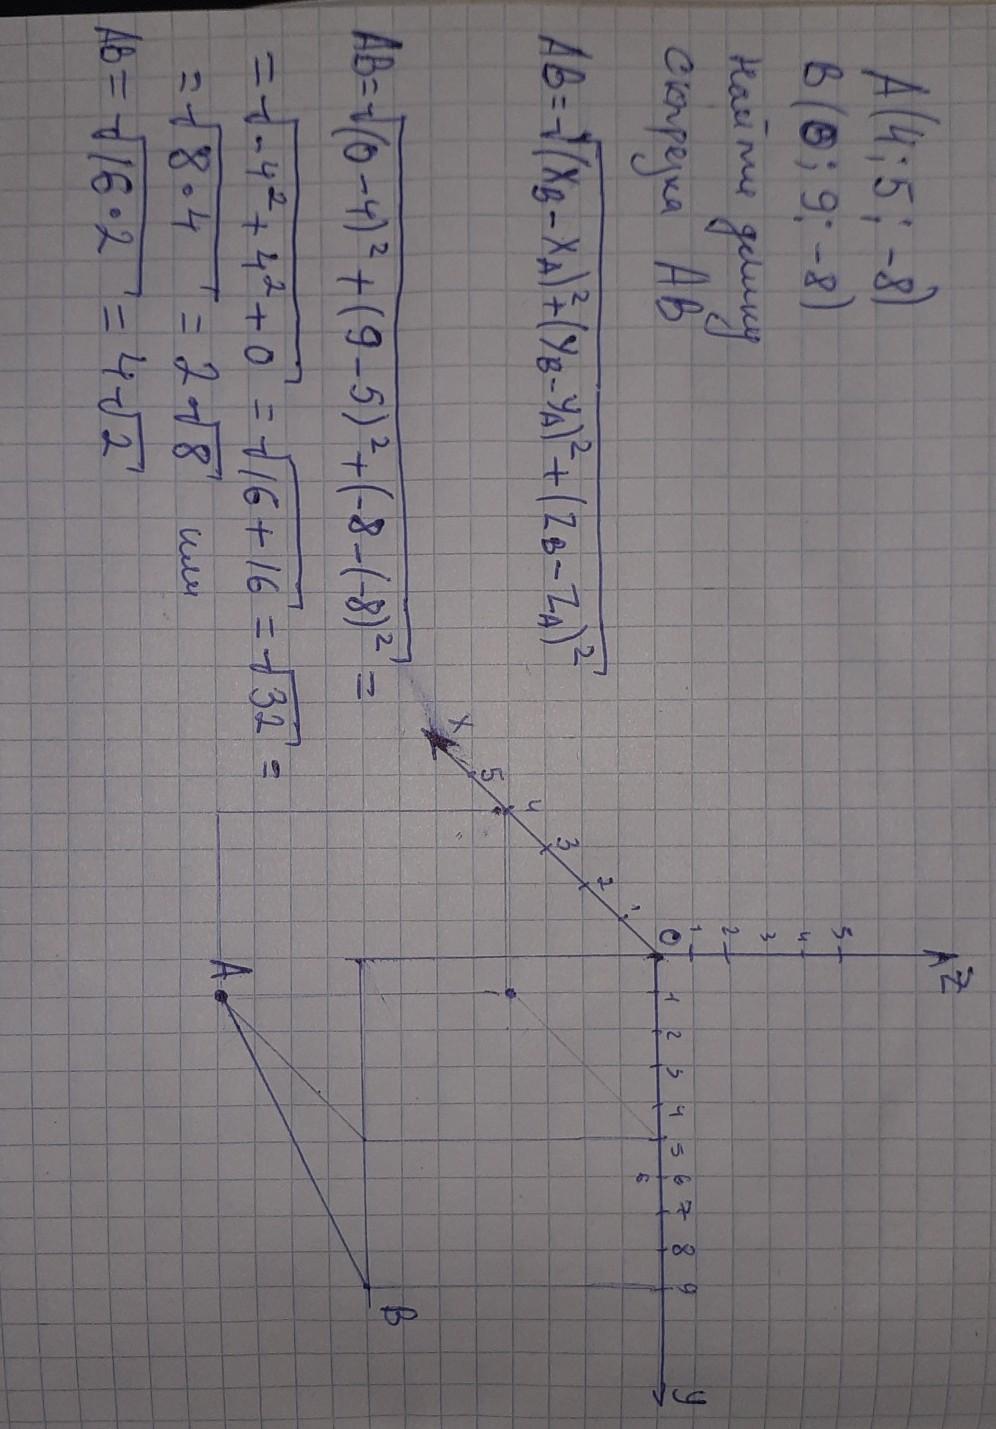 A(4; 5; -8)
B(0; 9; -8)
Найти длину
отрезка AB
AB = √(X_B - X_A)² + (Y_B - Y_A)² + (Z_B - Z_A)²
AB = √(0 - 4)² + (9 - 5)² + (-8 - (-8)² =
= √-4² + 4² + 0 = √16 + 16 = √32 =
= √8·4 = 2√8 или
AB = √16·2 = 4√2
Z
5
4
3
2
1
O
1 2 3 4 5 6 7 8 9
6
y
1
2
3
4
5
X
A
B